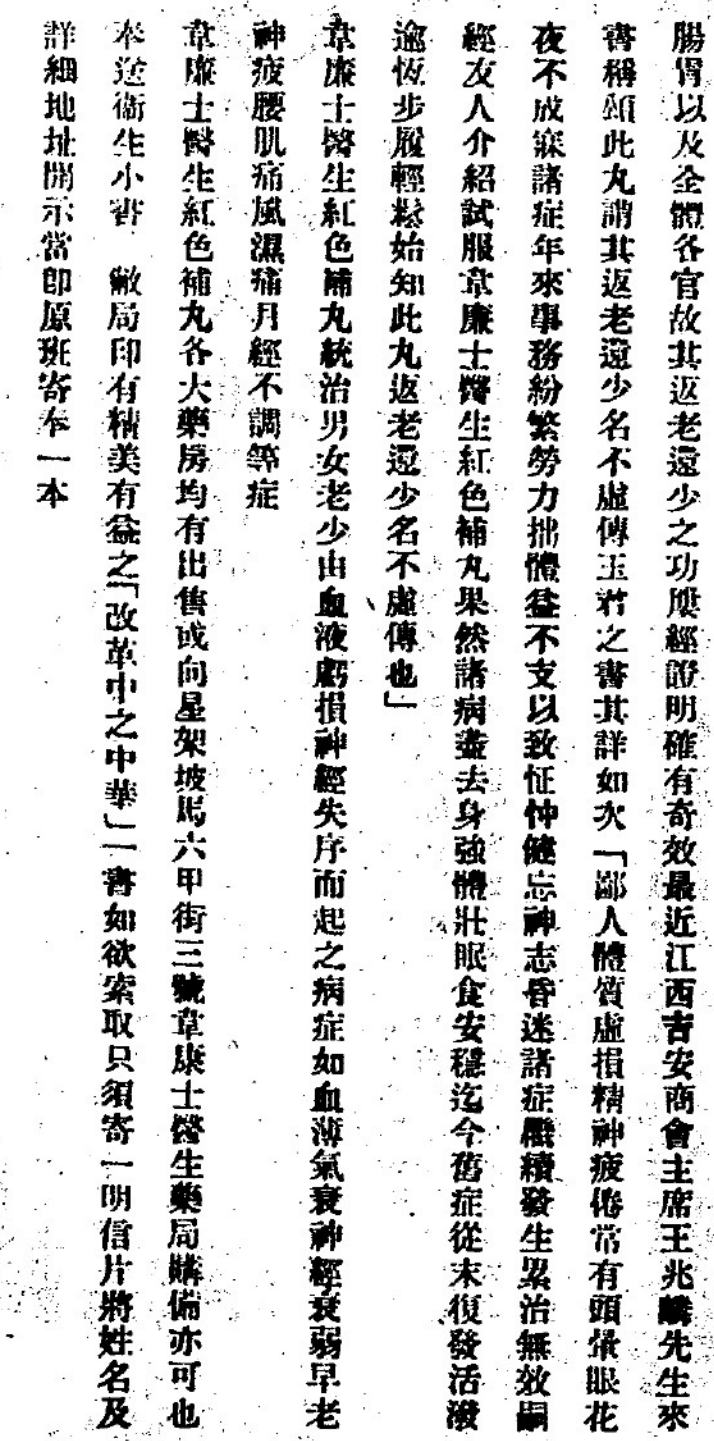 腸胃以及全體各官故其返老還少之功屢經證明確有奇效最近江西吉安商會主席王兆麟先生來
書稱頌此丸謂其返老還少名不虛傳王君之書其詳如次「鄙人體質虛損精神疲倦常有頭暈眼花
夜不成寐諸症年來事務紛繁勞力拙體益不支以致怔忡健忘神志昏迷諸症繼續發生累治無效嗣
經友人介紹試服韋廉士醫生紅色補丸果然諸病盡去身強體壯眠食安穩迄今舊症從未復發活潑
逾恆步履輕鬆始知此丸返老還少名不虛傳也」
韋廉士醫生紅色補丸統治男女老少由血液虧損神經失序而起之病症如血薄氣衰神經衰弱早老
神疲腰肌痛風濕痛月經不調等症
韋廉士醫生紅色補丸各大藥房均有出售或向星架坡馬六甲街三號韋廉士醫生藥局購備亦可也
奉送衞生小書 敝局印有精美有益之「改革中之中華」一書如欲索取只須寄一明信片將姓名及
詳細地址開示當即原班寄奉一本